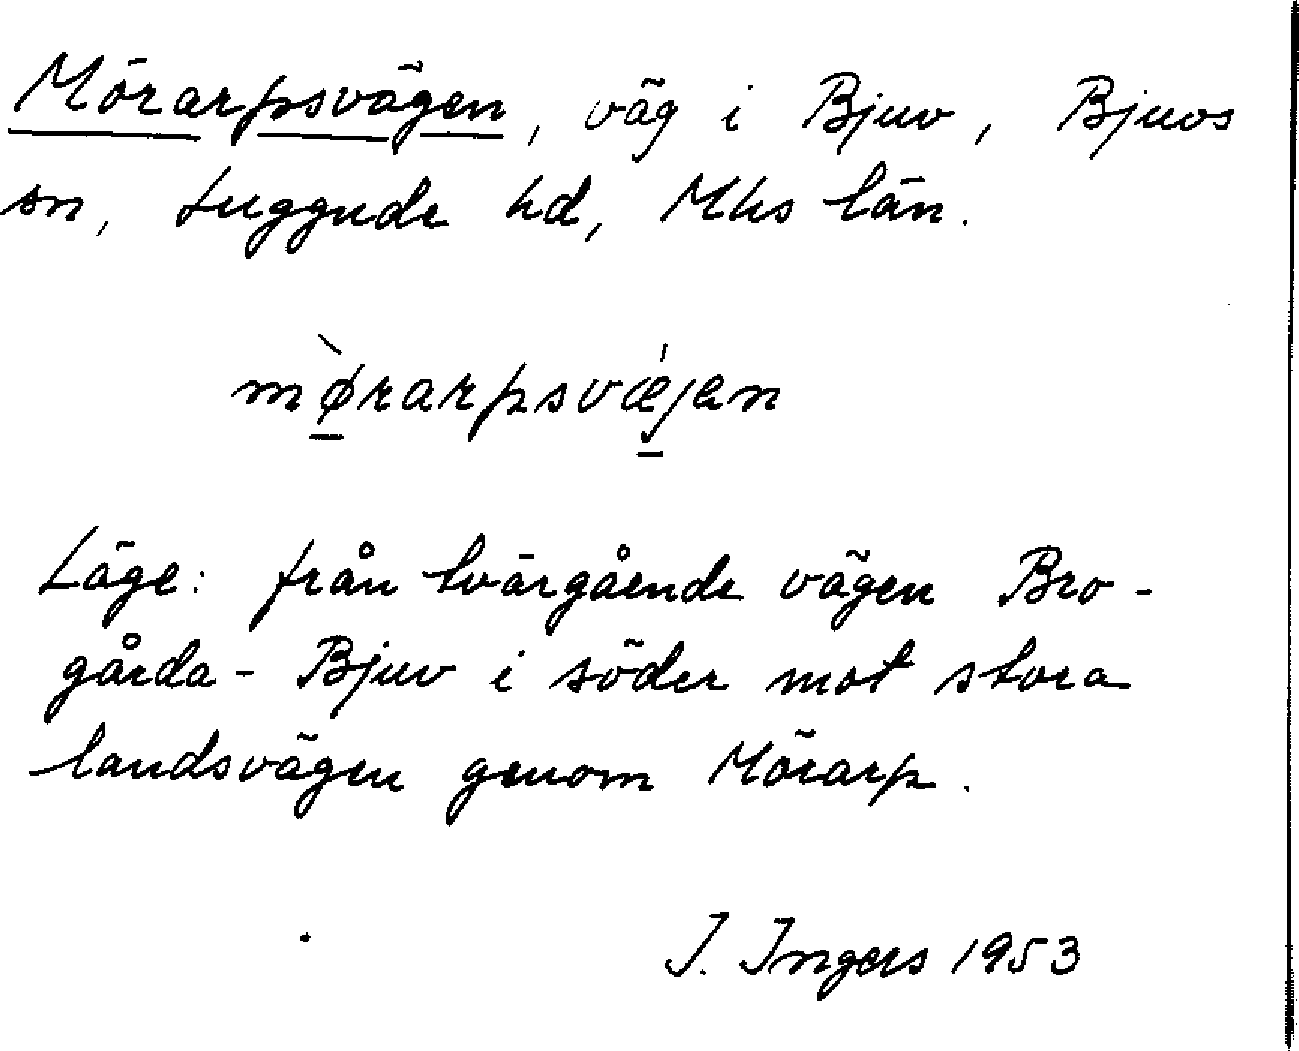 Mörarpsvägen, väg i Bjuv, Bjuvs
sn, Luggude hd, Mhs län.
mø̀rarpsvǽjæn
Läge: från tvärgående vägen Bro-
gårda - Bjuv i söder mot stora
landsvägen genom Mörarp.
I. Ingers 1953